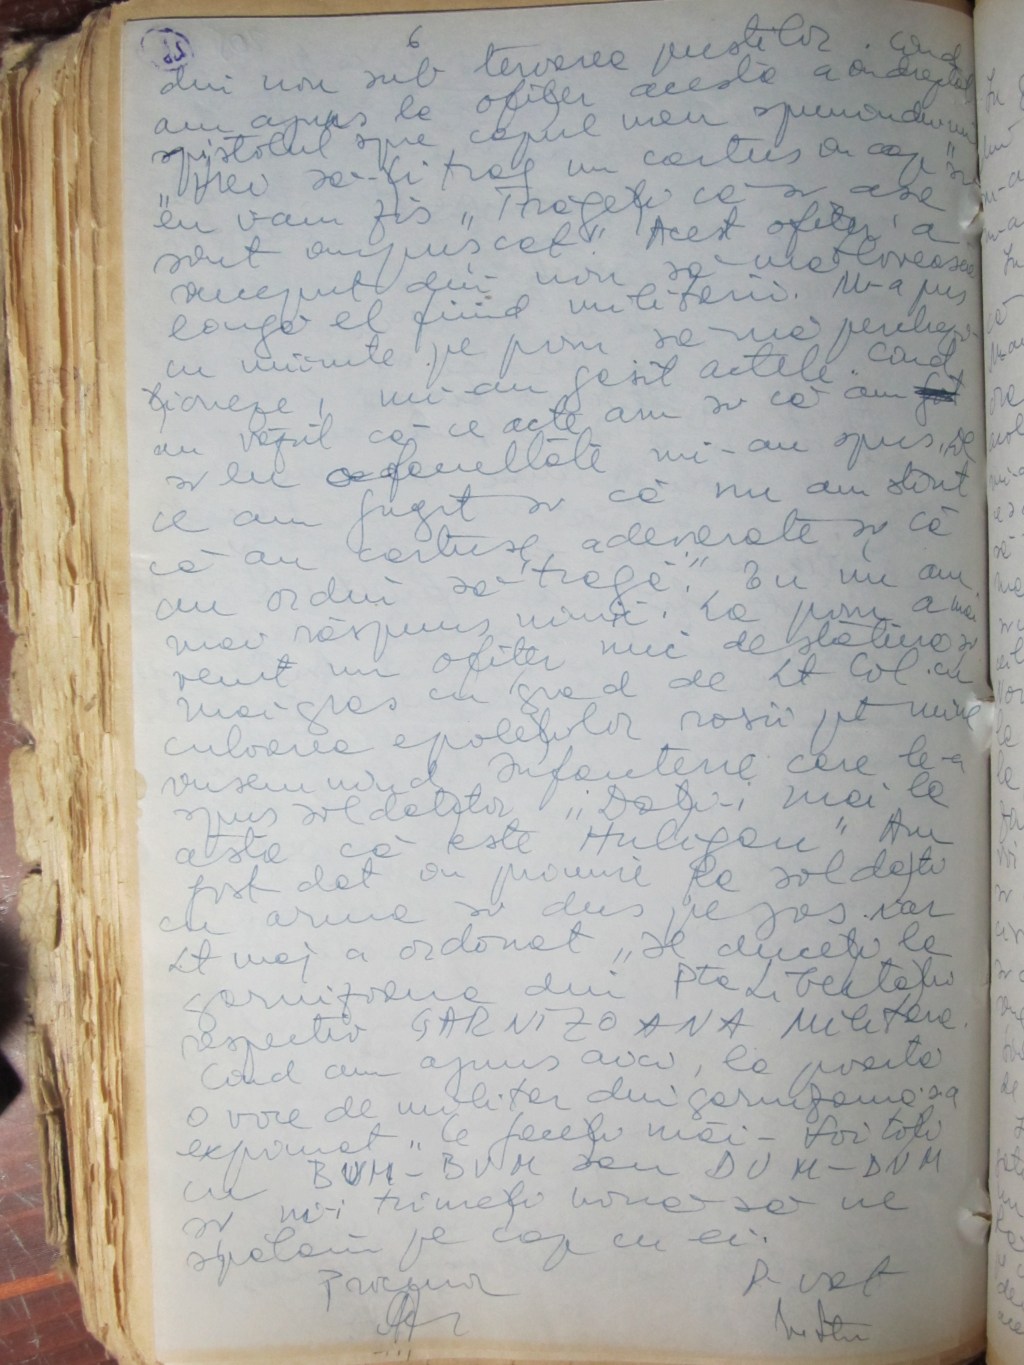 6
din nou sub teroarea pustilor. Cînd
am ajuns la ofițer acesta a îndreptat
pistolul spre capul meu spunîndumi
"Vrei să-ți trag un cartuș în cap" și
eu iam zis "Trageți că și așa
sînt împușcat" Acest ofițer a
început din nou să mă lovească
lîngă el fiind militarii. M-a pus
cu mîinile pe pom să mă perchezi-
ționeze, mi-au găsit actele. Cînd
au văzut că ce acte am și că am
și eu facultate mi-au spus, de
ce am fugit și că nu am știut
că au cartușe adevărate și că
au ordin să "tragă". Eu nu am
mai răspuns nimic. La pom a mai
venit un ofițer mic de statură și
mai gras cu grad de Lt Col. cu
culoarea epoleților roșii pt mine
însemnînd infanterie care le-a
spus soldaților "Dați-i mai la
ăsta că este Huligan" Am
fost dat în primire la soldați
cu arma și dus pe jos. iar
Lt maj a ordonat "Îl duceți la
garnizoana din Pta Libertății
respectiv GARNIZOANA Militară.
Cînd am ajuns aici, la poartă
o voce de militar din garnizoană s-a
exprimat "Ce faceți măi - Voi toți
cu BUM-BUM sau DUM-DUM
și ni-i trimeți nouă să ne
spălăm pe cap cu ei.
Procuror